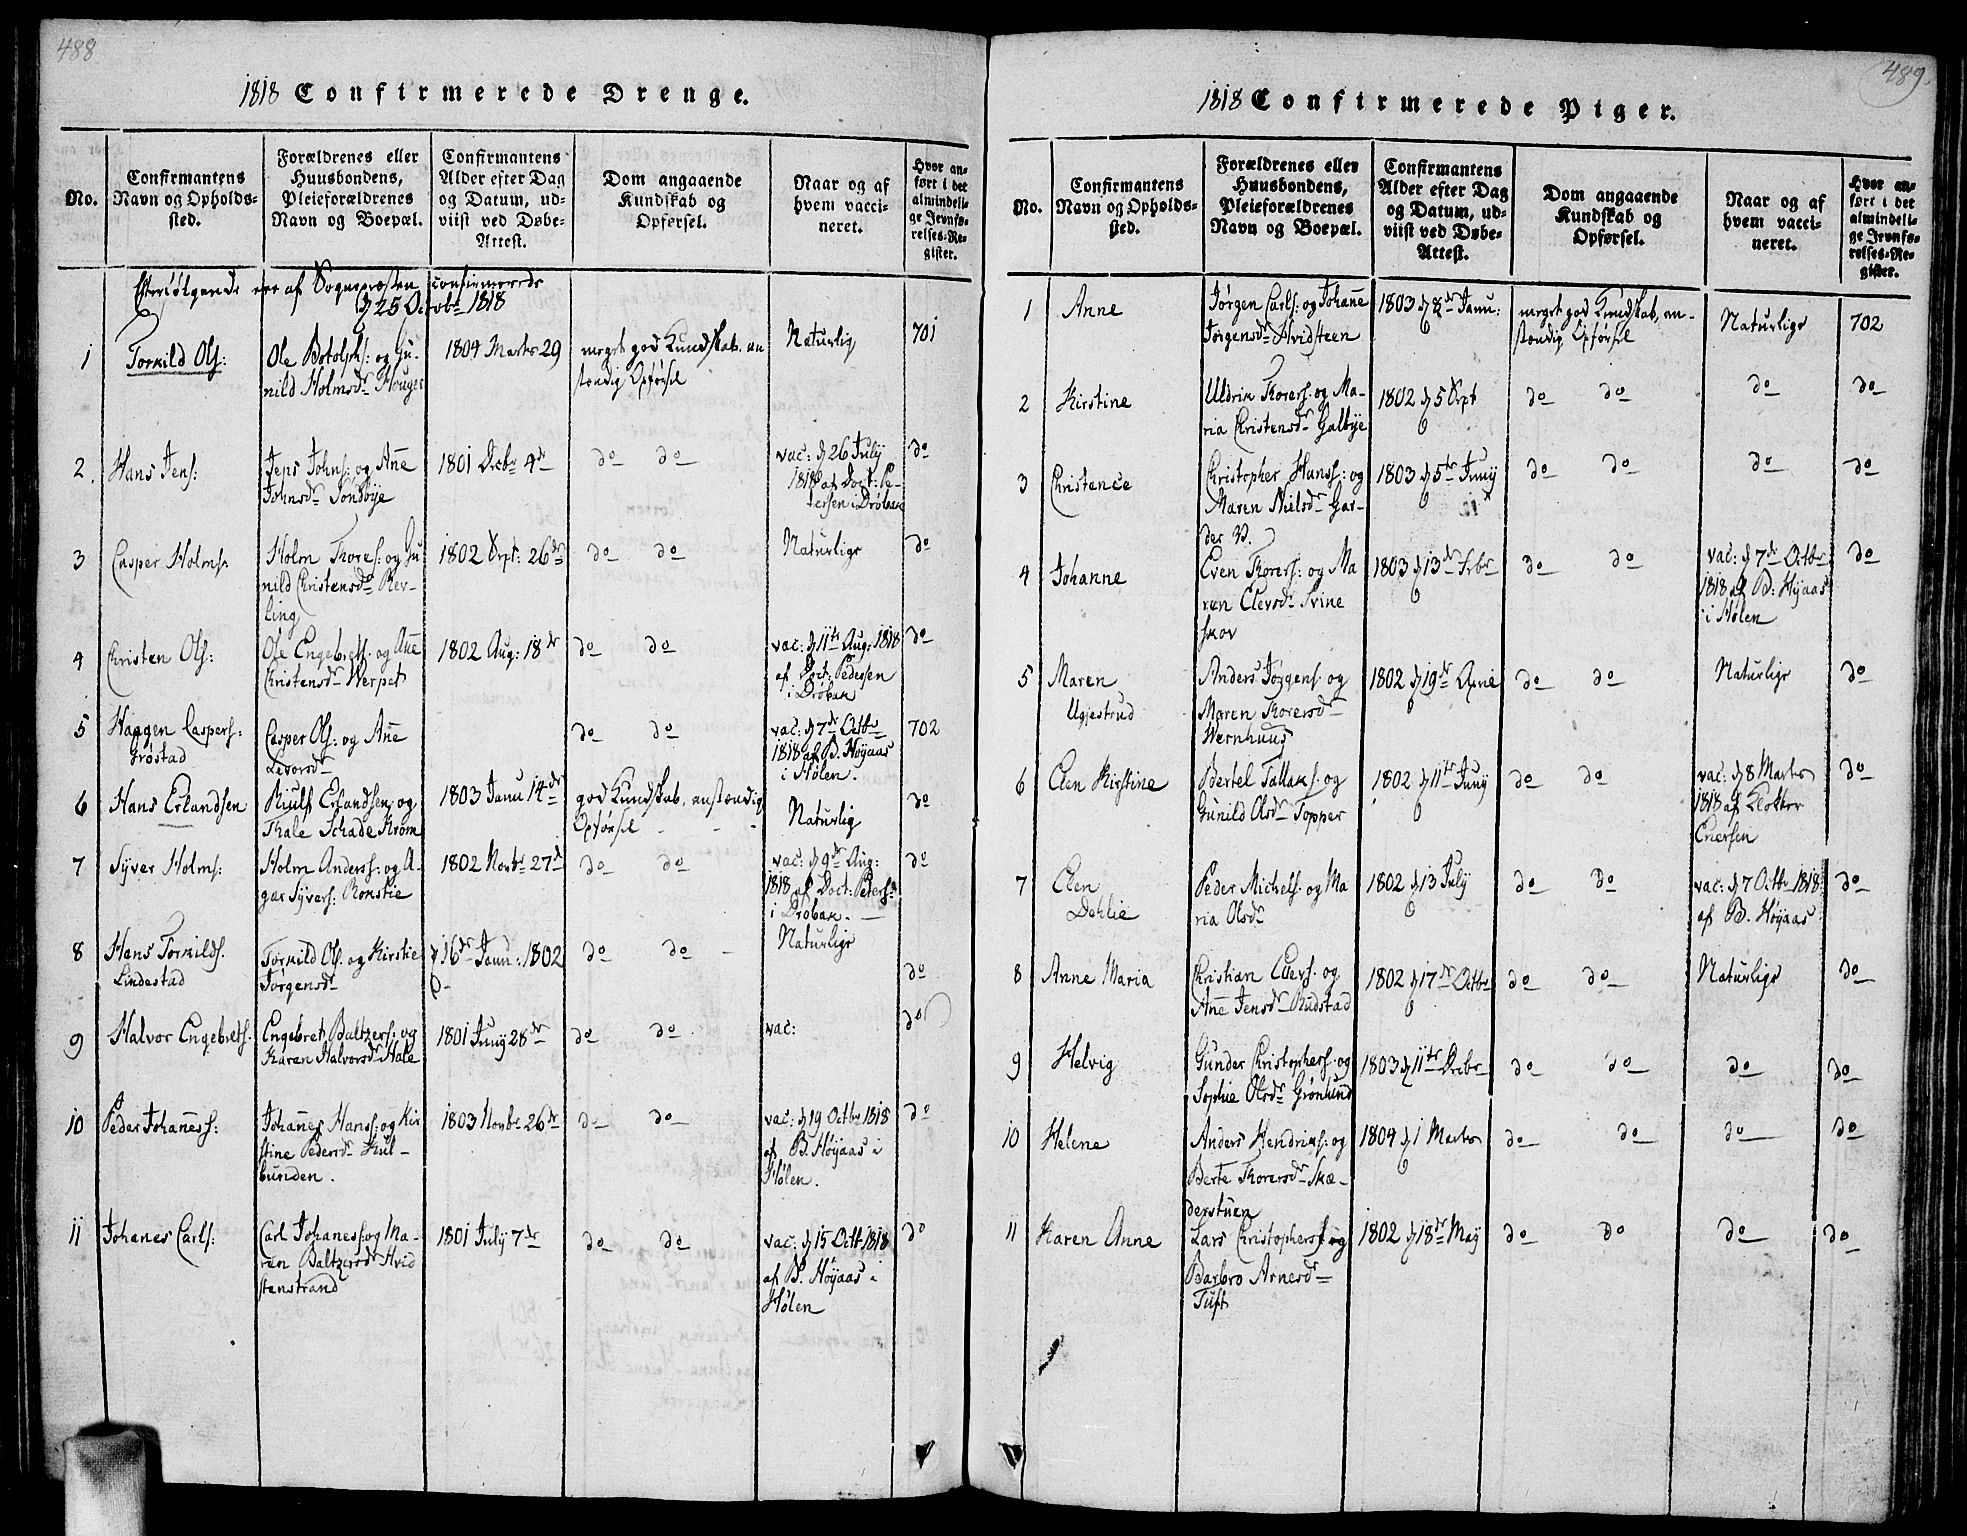 488
1818 Confirmerede Drenge.
No.
Confirmantens
Navn og Opholds-
sted.
Forældrenes eller
Huusbondens,
Pleieforældrenes
Navn og Boepæl.
Confirmantens
Alder efter Dag
og Datum, ud-
viist ved Døbe-
Attest.
Dom angaaende
Kundskab og
Opførsel.
Naar og af
hvem vacci-
neret.
Hvor an-
ført i det
almindeli-
ge Jevnfø-
relses-Re-
gister.
Efterfølgende ere af Sognepræsten confirmerede
d 25 Octobr 1818
1
Torkild Ols:
Ole Botolphs: og Gu-
nild Holmsdr Houger
1804 Marts 29
meget god Kundskab, an
stændig Opførsel
Naturlig
701
2.
Hans Jens:
Jens Johns: og Anne
Johnsdr Sondbye
1801 Decbr 4de
do do
vac: d 26 July
1818 af Doct: Pe-
tersen i Drøbak
do
3
Casper Holms:
Holm Thores: og Gu
nild Christensdr Rev-
ling
1802 Sept: 26de
do do
Naturlige
do
4
Christen Ols:
Ole Engebrets: og Anne
Christensdr Werpet
1802 Aug: 18de
do do
vac: d 11te Aug: 1818
af Doct: Pedersen
i Drøbak
do
5
Haagen Caspers:
Grøstad
Casper Ols: og Anne
Levorsdr
do do
vac: d 7de Octbr
1818 af B. Høyaas
i Hølen.
702
6
Hans Erlandsen
Riulf Erlandsen og
Thale Schade Krom
1803 Janu 14de
god Kundskab, anstændig
Opførsel
Naturlig
do
7
Syver Holms:
Holm Anders: og A-
gar Syvers: Ronstie
1802 Novbr 27d
do do
vac: d 9de Aug:
1818 af Doct: Peders:
i Drøbak.
do
8
Hans Torkilds.
Lindestad
Torkild Ols. og Kirstie
Jørgensdr
d 16de Janu: 1802
do do
Naturlige
do
9
Halvor Engebrets.
Engebret Baltzers: og
Karen Halvorsdr Hale
1801 Juny 28de
do do
vac:
do
10
Peder Johannes:
Johannes Hans: og Kir
stine Pedersdr Hul-
bunden.
1803 Novbr 26de
do do
vac: d 19 Octbr 1818
af B. Høyaas i
Hølen.
do
11
Johanes Carls:
Carl Johanes: og Ma-
ren Baltzersdr Hvid
stenstrand
1801 July 7de
do do
vac: d 15 Octbr 1818
af B. Høyaas i
Hølen
do
489.
1818 Confirmerede Piger.
No.
Confirmantens
Navn og Opholds-
sted.
Forældrenes eller
Huusbondens,
Pleieforældrenes
Navn og Boepæl.
Confirmantens
Alder efter Dag
og Datum, ud-
viist ved Døbe-
Attest.
Dom angaaende
Kundskab og
Opførsel.
Naar og af
hvem vacci-
neret.
Hvor an-
ført i det
almindeli-
ge Jevnfø-
relses-Re-
gister.
1
Anne
Jørgen Carls: og Johane
Jørgensdr Hvidsteen
1803 d 8de Janu:
meget god Kundskab, an-
stændig Opførsel
Naturlige
702
2
Kirstine
Uldrik Thorers: og Ma-
ria Christensdr Galbye
1802 d 5 Sept
do do
do
do
3
Christence
Christopher Hans: og
Maren Nielsdr Gar-
der V.
1803 d 5te Juny
do do
do
do
4
Johanne
Even Thorers: og Ma
ren Elevsdr Svine
skov
1803 d 13de Febr
do do
vac: d 7de Octbr
1818 af B: Høyaas
i Hølen
do
5
Maren
Ugjestrud
Anders Jørgens: og
Maren Thorersdr
Wernhuus
1802 d 19de
do do
Naturlige
do
6
Elen Kirstine
Bertel Tallaks: og
Gunild Olsdr Topper
1802 d 11te Juny
do do
vac: d 8 Marts
1818 af Klokker
do
7
Elen
Dehlie
Peder Michels: og Ma
ria Olsdr
1802 d 13 July
do do
vac: d 7 Octbr 1818
af B. Høyaas
do
8
Anne Maria
Christian Evers: og
Anne Jensdr Rudstad
1802 d 17de Octbr
do do
Naturlige
do
9
Helvig
Gunder Christophers: og
Sophie Olsdr Grønlund
1803 d 11te Decbr
do do
do
do
10
Helene
Anders Hendriks: og
Berte Thorersdr Skæ-
derstuen
1804 d 1 Marts
do do
do
do
11
Karen Anne
Lars Christophers: og
Barbro Arnesdr
Tuft
1802 d 18de May
do do
do
do